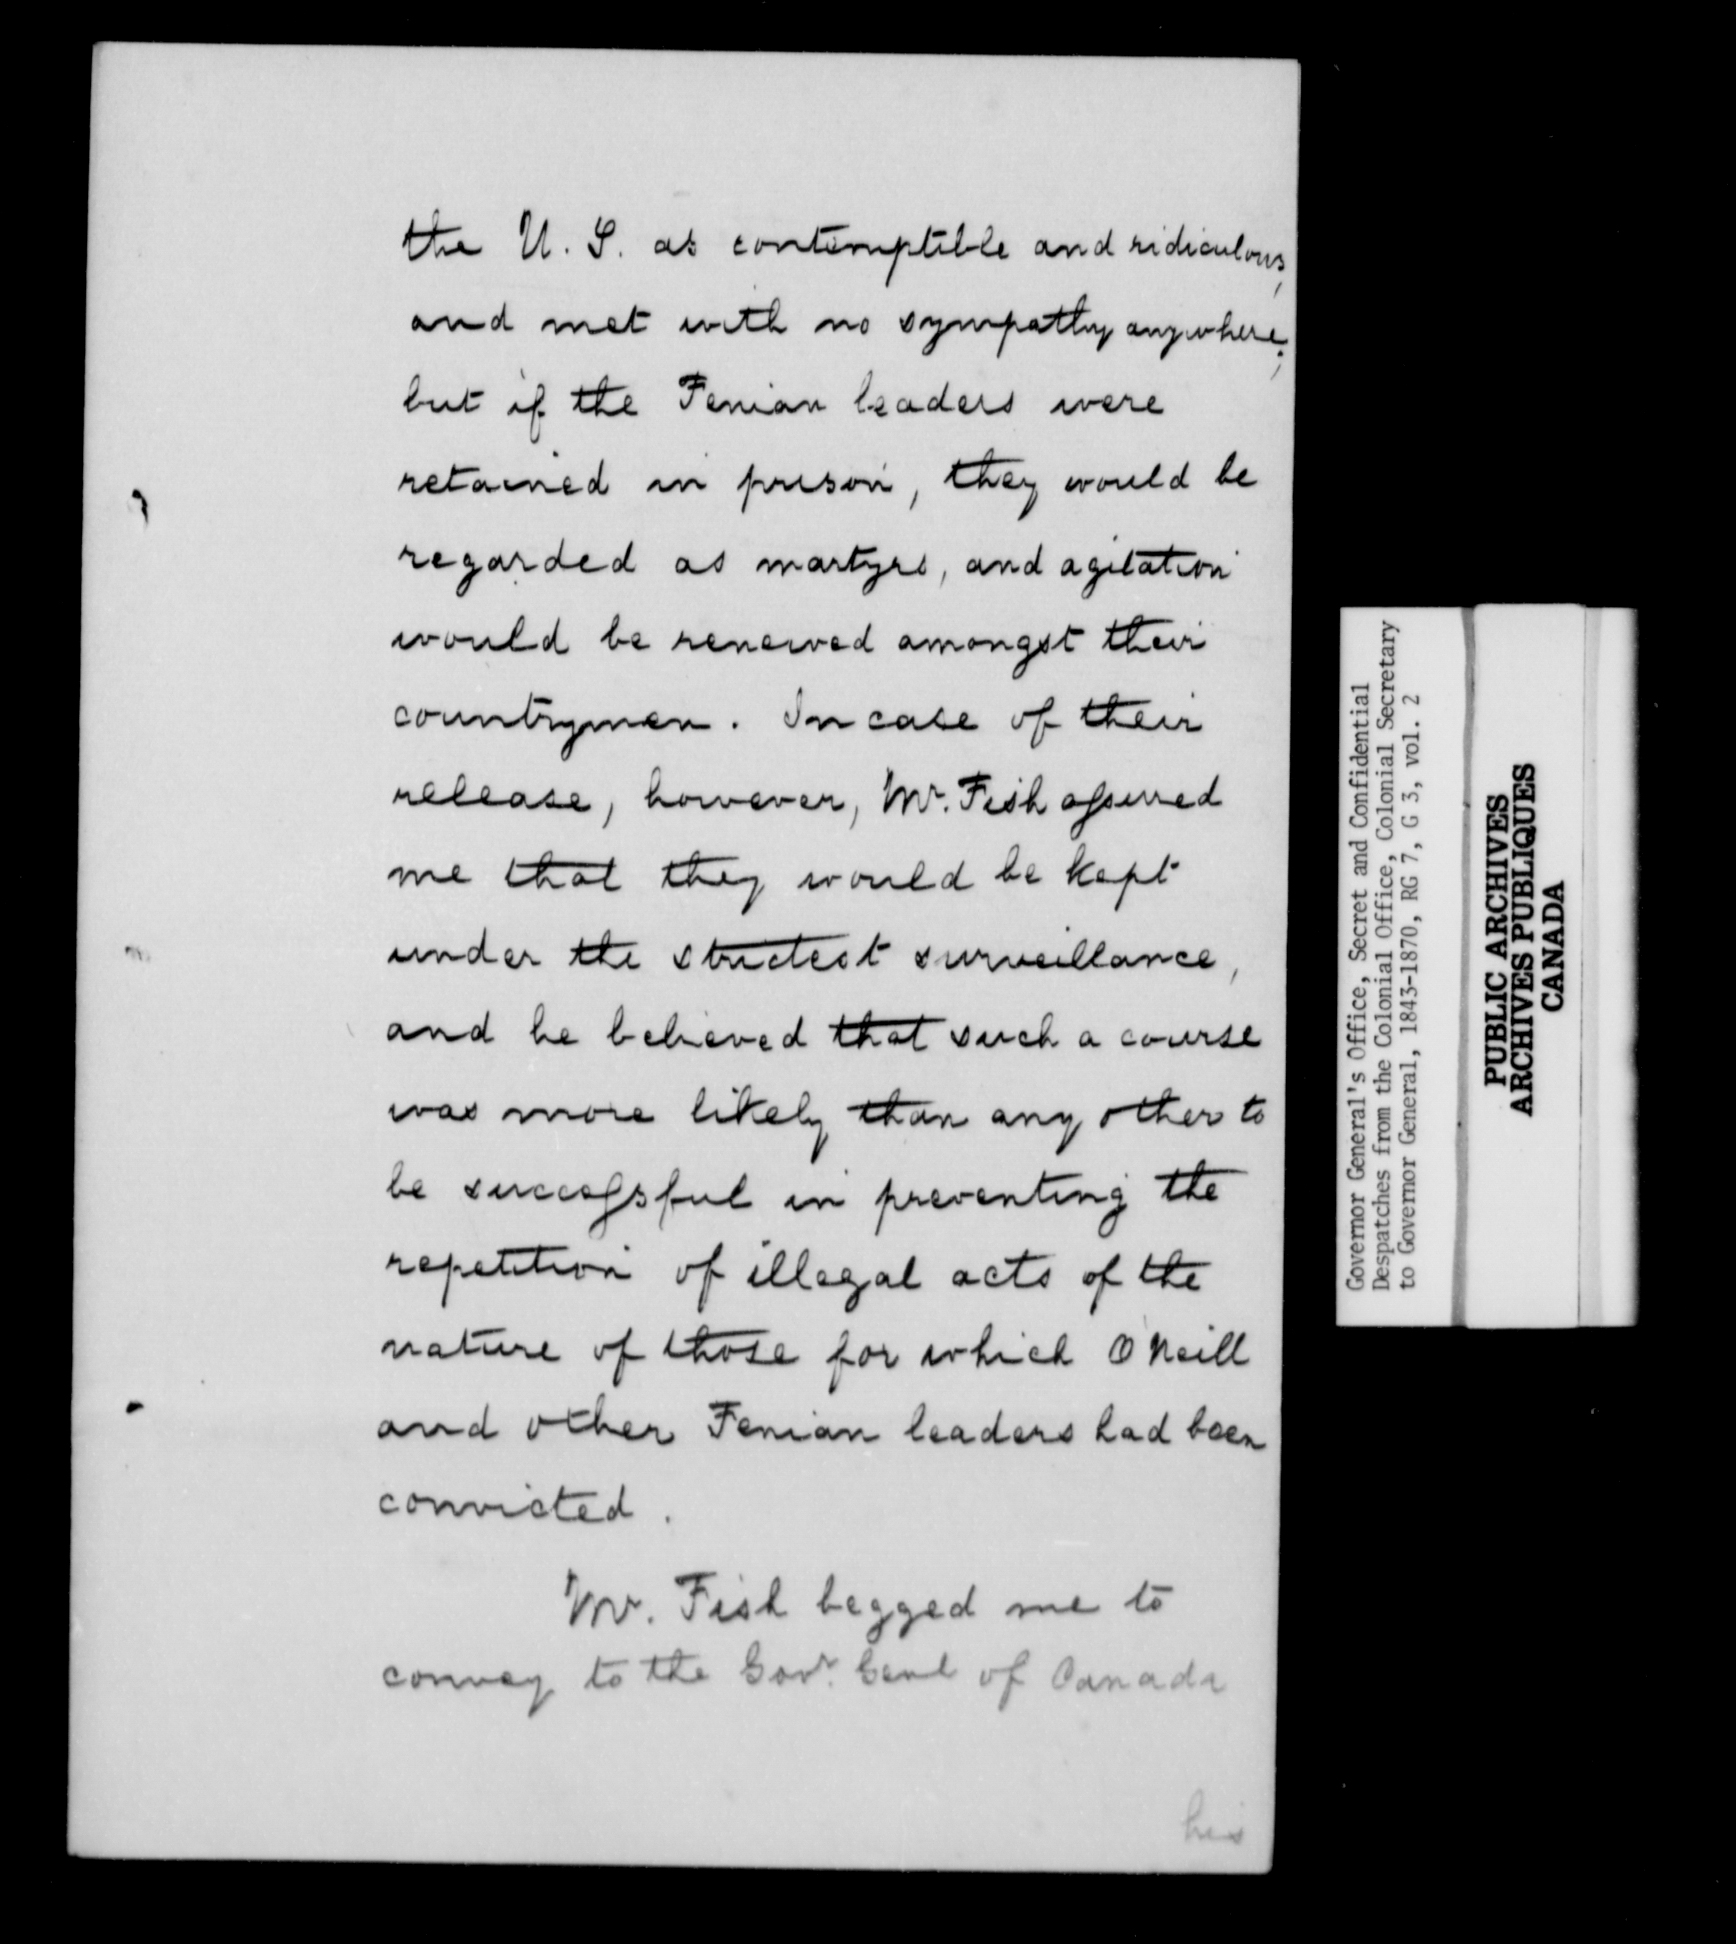 the U. S. as contemptible and ridiculous,
and met with no sympathy anywhere;
but if the Fenian leaders were
retained in prison, they would be
regarded as martyrs, and agitation
would be renewed amongst their
countrymen. In case of their
release, however, Mr. Fish assured
me that they would be kept
under the strictest surveillance,
and he believed that such a course
was more likely than any other to
be successful in preventing the
repetition of illegal acts of the
nature of those for which O'Neill
and other Fenian leaders had been
convicted.
Mr. Fish begged me to
convey to the Govr. Genl of Canada
his
Governor General's Office, Secret and Confidential
Despatches from the Colonial Office, Colonial Secretary
to Governor General, 1843-1870, RG 7, G 3, vol. 2
PUBLIC ARCHIVES
ARCHIVES PUBLIQUES
CANADA